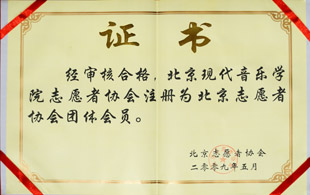 证书
经审核合格，北京现代音乐学
院志愿者协会注册为北京志愿者
协会团体会员。
北京志愿者协会
二〇〇九年五月